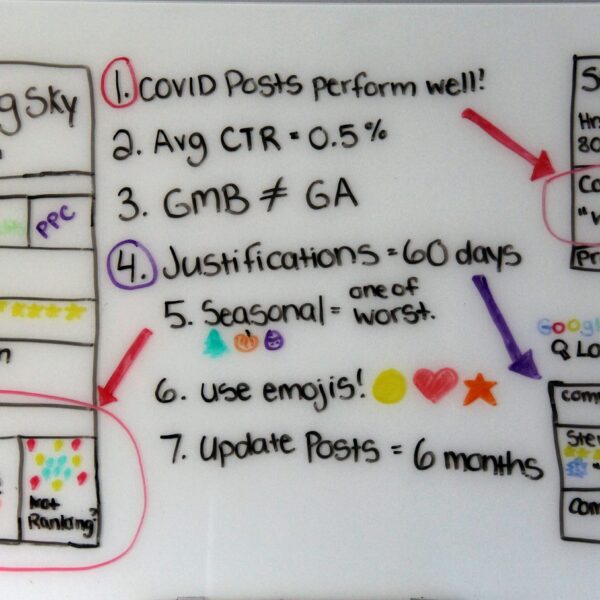 g Sky
PPC
n
Not
Ranking?
1. COVID Posts perform well!
2. Avg CTR = 0.5%
3. GMB ≠ GA
4. Justifications = 60 days
5. Seasonal = one of
worst.
6. use emojis!
7. Update Posts = 6 months
S
Hrs
80
Co
"V
Pr
Googl
Q Lo
com
Ste
com